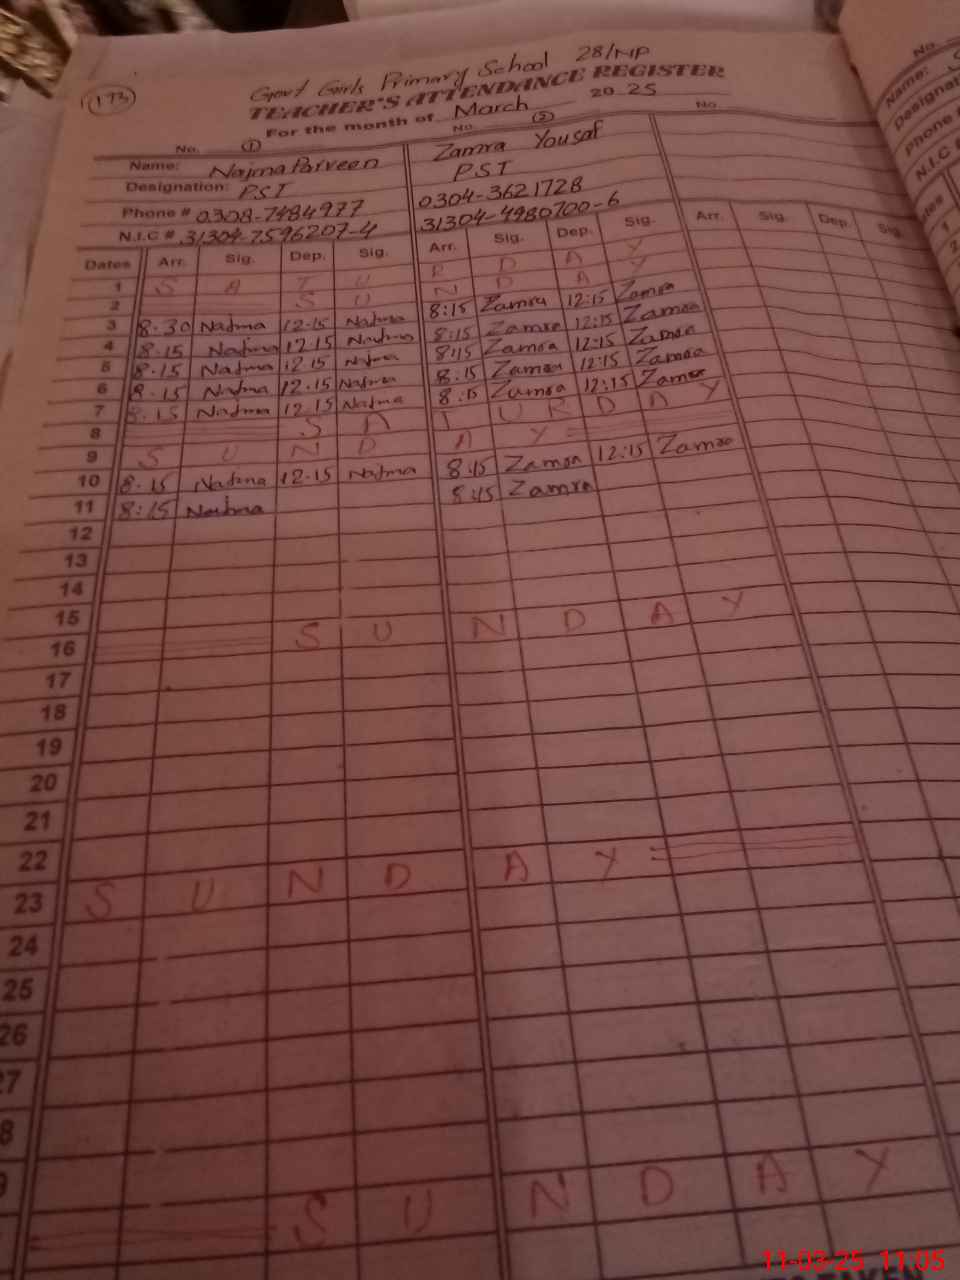 173
Govt Girls Primary School 28/NP
TEACHER'S ATTENDANCE REGISTER
For the month of March 2025
No. 1 No. 2 No.
Name: Najma Parveen Zamra Yousaf
Designation: PST PST
Phone # 0308-7484977 0304-3621728
N.I.C # 31304-7596207-4 31304-4980700-6
Dates Arr. Sig. Dep. Sig. Arr. Sig. Dep. Sig. Arr. Sig. Dep. Sig.
1 S A T U R D A Y
2 S U N D A Y
3 8:30 Najma 12:15 Najma 8:15 Zamra 12:15 Zamra
4 8:15 Najma 12:15 Najma 8:15 Zamra 12:15 Zamra
5 8:15 Najma 12:15 Najma 8:15 Zamra 12:15 Zamra
6 8:15 Najma 12:15 Najma 8:15 Zamra 12:15 Zamra
7 8:15 Najma 12:15 Najma 8:15 Zamra 12:15 Zamra
8 S A T U R D A Y
9 S U N D A Y
10 8:15 Najma 12:15 Najma 8:15 Zamra 12:15 Zamra
11 8:15 Najma 8:15 Zamra
12
13
14
15
16 S U N D A Y
17
18
19
20
21
22
23 S U N D A Y
24
25
26
27
8
9
S U N D A Y
No.
Name:
Designat
Phone
N.I.C
tes
1
2
11-03-25 11:05